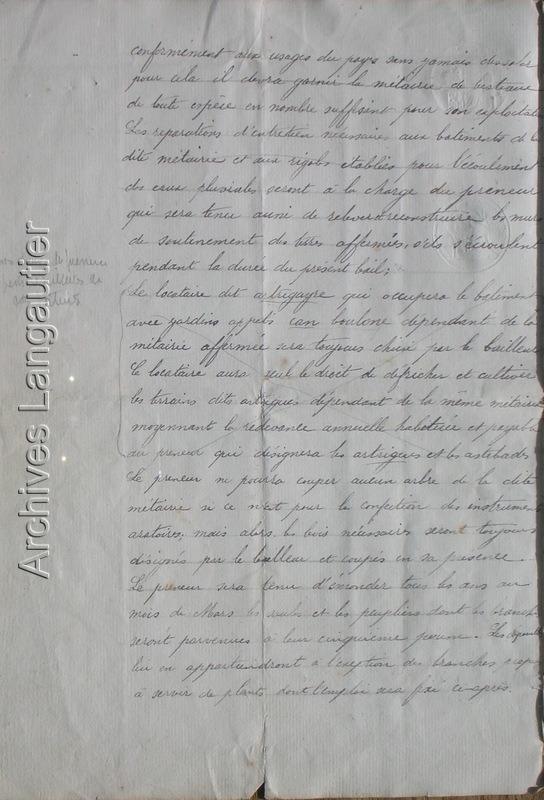 conformément aux usages du pays sans jamais dessoler
pour cela il devra garnir la métairie de bestiaux
de toute espèce en nombre suffisant pour son exploitation
Les réparations d'entretien nécessaires aux batiments de la
dite métairie et aux rigoles etablies pour l'écoulement
des eaux pluviales seront à la charge du preneur
qui sera tenu aussi de relever et reconstruire les murs
de soutenement des terres affermées, s'ils s'écroulent
pendant la durée du présent bail;
Le locataire dit artigayre qui occupera le batiment
avec jardins appelé can boulene dépendant de la
métairie affermée sera toujours choisi par le bailleur
Ce locataire aura seul le droit de défricher et cultiver
les terrains dits artigues dépendant de la même métairie
moyennant la redevance annuelle habituee et payable
au preneur qui désignera les artigues et les
Le preneur ne pourra couper aucun arbre de la dite
métairie si ce n'est pour la confection des instruments
aratoires, mais alors les bois nécessaires seront toujours
désignés par le bailleur et coupés en sa presence.
Le preneur sera tenu d'émonder tous les ans au
mois de Mars les saules et les peupliers dont les branches
seront parvenues à leur cinquieme pousse. Les dépouilles
lui en appartiendront à l'exeption des branches propres
à servir de plants dont l'emploi sera fixé ci-après.
Archives Langautier